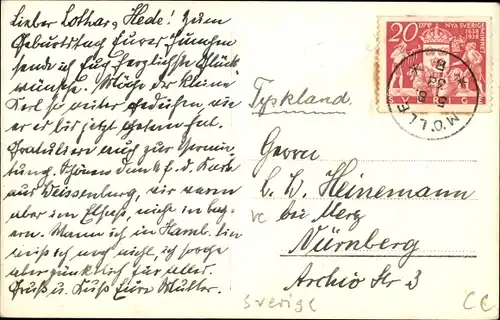 Lieber Lothar, Hede! Zum
Geburtstag Eures Jungen
sende ich Euch herzlichste Glück
wünsche. Möge der kleine
Kerl so weiter gedeihen wie
er es bis jetzt getan hat.
Gratuliere auch zur
tung. Schönen Dank f. d. Karte
aus Weissenburg, wir waren
aber im Elsass, nicht in Bay-
ern. Wann ich in Hamb. bin
weiß ich noch nicht, ich sorge
aber pünktlich für alles.
Gruß u. Kuß Eure Mutter.
20 ÖRE
NYA SVERIGE
MINNET
1638
1938
SVERIGE
MÖLLE
5 8 38
Tyskland.
Herrn
L. W. Heinemann
bei Merz
Nürnberg
Archiv Str 3
Sverige
CE